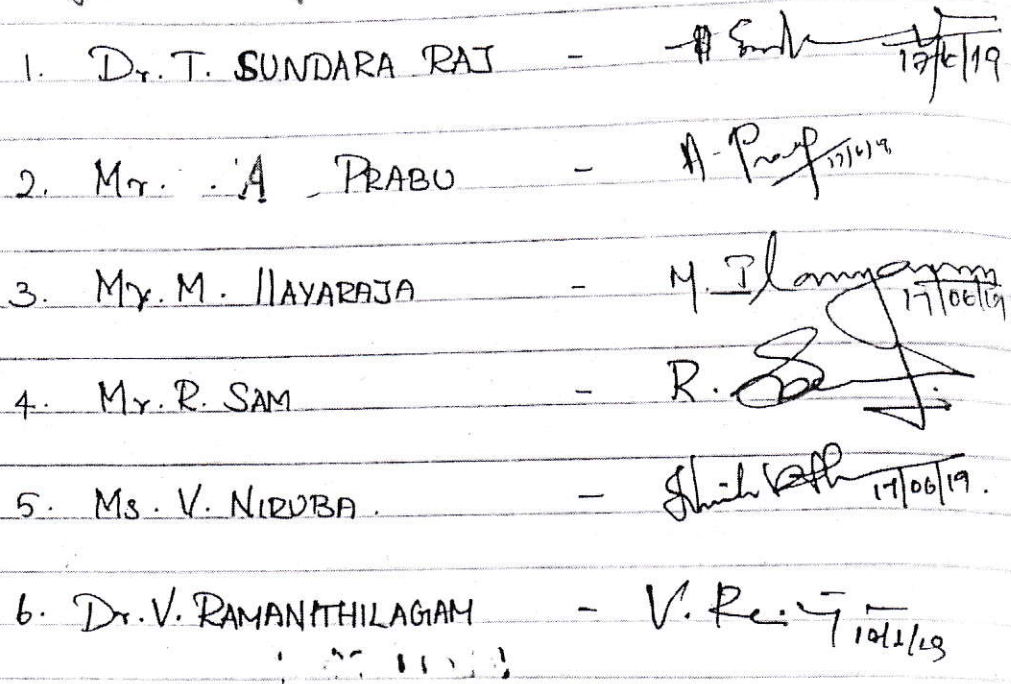 1. Dr. T. SUNDARA RAJ - 17/6/19
2. Mr. A PRABU - A. 17/6/19
3. Mr. M. IlAYARAJA - M. 17/06/19
4. Mr. R. SAM - R.
5. Ms. V. NIRUBA. - 17/06/19.
6. Dr. V. RAMANITHILAGAM - V.